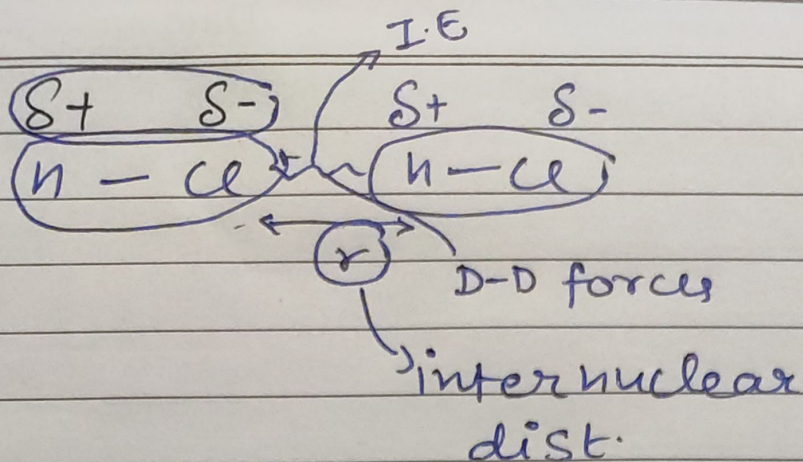 I.E
δ+ δ- δ+ δ-
H — Cl H — Cl
r
D-D forces
internuclear
dist.